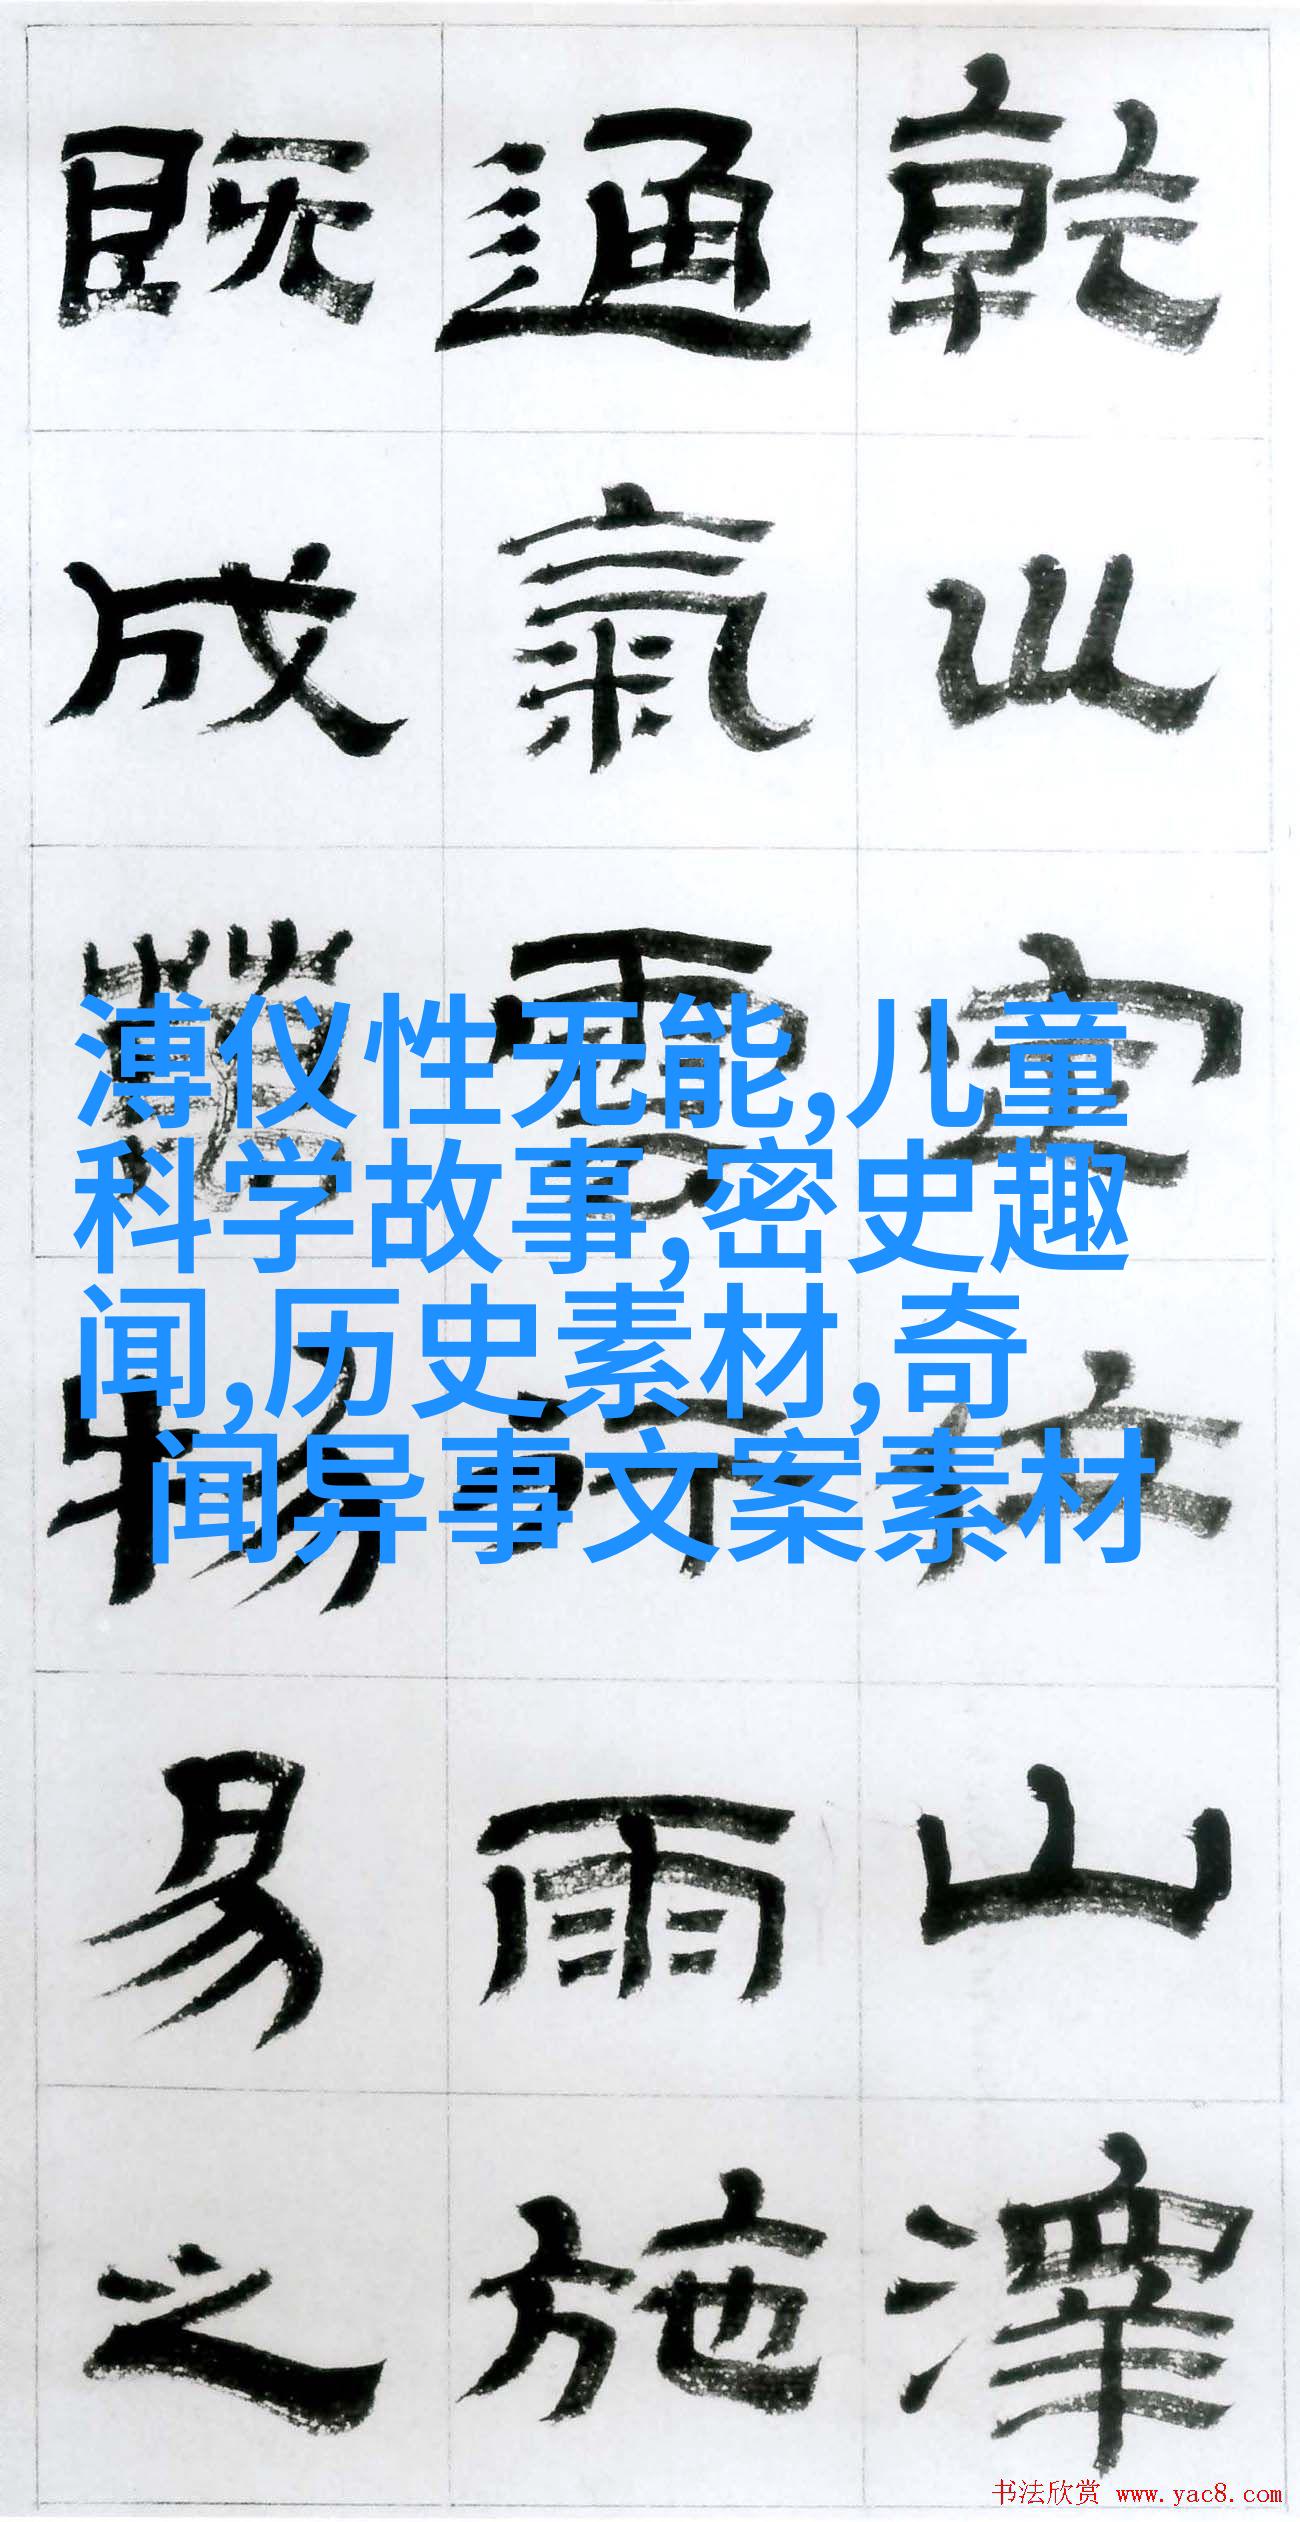 乾川定位山澤
通氣雲行雨施
既成萬物易之
溥仪性无能,儿童
科学故事,密史趣
闻,历史素材,奇
闻异事文案素材
书法欣赏 www.yac8.com